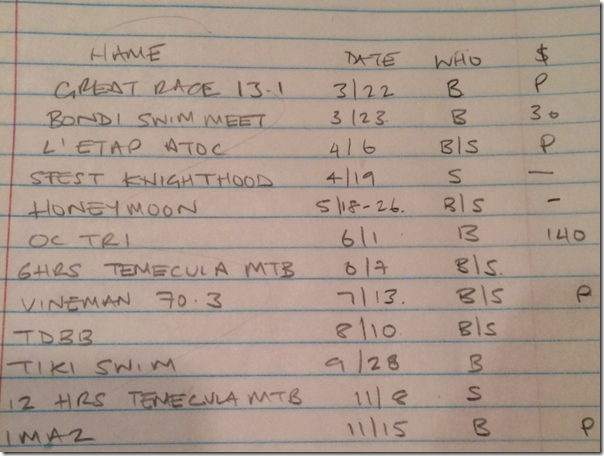 NAME DATE WHO $
GREAT RACE 13.1 3/22 B P
BONDI SWIM MEET 3/23 B 30
L'ETAP ATOC 4/6 B/S P
SFEST KNIGHTHOOD 4/19 S —
HONEYMOON 5/18-26. B/S -
OC TRI 6/1 B 140
6HRS TEMECULA MTB 6/7 B/S.
VINEMAN 70.3 7/13. B/S P
TDBB 8/10 B/S
TIKI SWIM 9/28 B
12 HRS TEMECULA MTB 11/8 S
IMAZ 11/15 B P